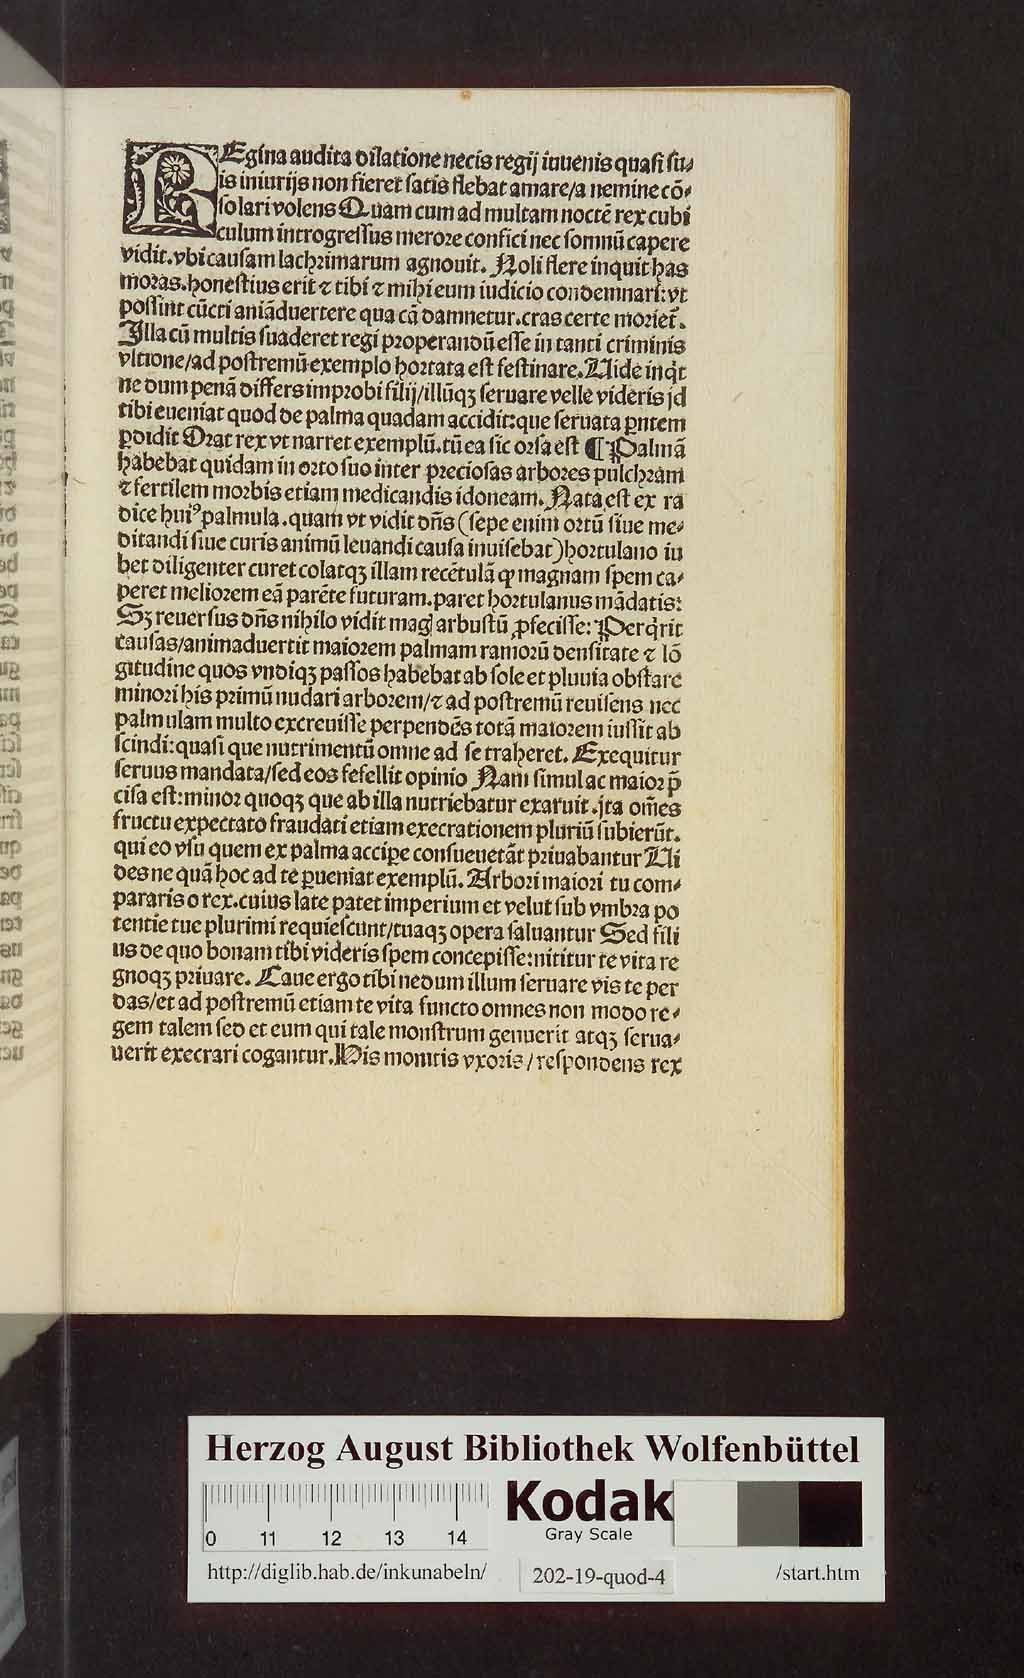 REgina audita dilatione necis regij iuuenis quasi su⸗
is iniurijs non fieret satis flebat amare/a nemine cō⸗
solari volens Quam cum ad multam noctē rex cubi
culum introgressus merore confici nec somnū capere
vidit.vbi causam lachrimarum agnouit. Noli flere inquit has
moras.honestius erit ⁊ tibi ⁊ mihi eum iudicio condemnari: vt
possint cūcti aniāduertere qua cā damnetur.cras certe morieť.
Illa cū multis suaderet regi properandū esse in tanti criminis
vltione/ad postremū exemplo hortata est festinare. Uide inq̇t
ne dum penā differs improbi filij/illūqꝫ seruare velle videris jd
tibi eueniat quod de palma quadam accidit: que seruata ꝑntem
ꝑdidit Orat rex vt narret exemplū.tū ea sic orsa est ¶ Palmā
habebat quidam in orto suo inter preciosas arbores pulchram
⁊ fertilem morbis etiam medicandis idoneam. Nata est ex ra
dice huiꝰ palmula.quam vt vidit dn̄s (sepe enim ortū siue me⸗
ditandi siue curis animū leuandi causa inuisebat) hortulano iu
bet diligenter curet colatqꝫ illam recētulā ꝙ magnam spem ca⸗
peret meliorem eā parēte futuram.paret hortulanus mādatis:
Sꝫ reuersus dn̄s nihilo vidit mag arbustū ꝓfecisse: Perq̇rit
causas/animaduertit maiorem palmam ramorū densitate ⁊ lō
gitudine quos vndiqꝫ passos habebat ab sole et pluuia obstare
minori his primū nudari arborem/⁊ ad postremū reuisens nec
palmulam multo excreuisse perpendēs totā maiorem iussit ab
scindi: quasi que nutrimentū omne ad se traheret. Exequitur
seruus mandata/sed eos fefellit opinio Nam simul ac maior p̄
cisa est: minor quoqꝫ que ab illa nutriebatur exaruit.jta om̄es
fructu expectato fraudati etiam execrationem pluriū subierūt.
qui eo vsu quem ex palma accipe consueuetāt priuabantur Ui
des ne quā hoc ad te ꝑueniat exemplū. Arbori maiori tu com⸗
pararis o rex.cuius late patet imperium et velut sub vmbra po
tentie tue plurimi requiescunt/tuaqꝫ opera saluantur Sed fili
us de quo bonam tibi videris spem concepisse: nititur te vita re
gnoqꝫ priuare. Caue ergo tibi nedum illum seruare vis te per
das/et ad postremū etiam te vita functo omnes non modo re⸗
gem talem sed et eum qui tale monstrum genuerit atqꝫ serua⸗
uerit execrari cogantur. His monitis vxoris/respondens rex
Herzog August Bibliothek Wolfenbüttel
Kodak
Gray Scale
0 11 12 13 14
http://diglib.hab.de/inkunabeln/ 202-19-quod-4 /start.htm